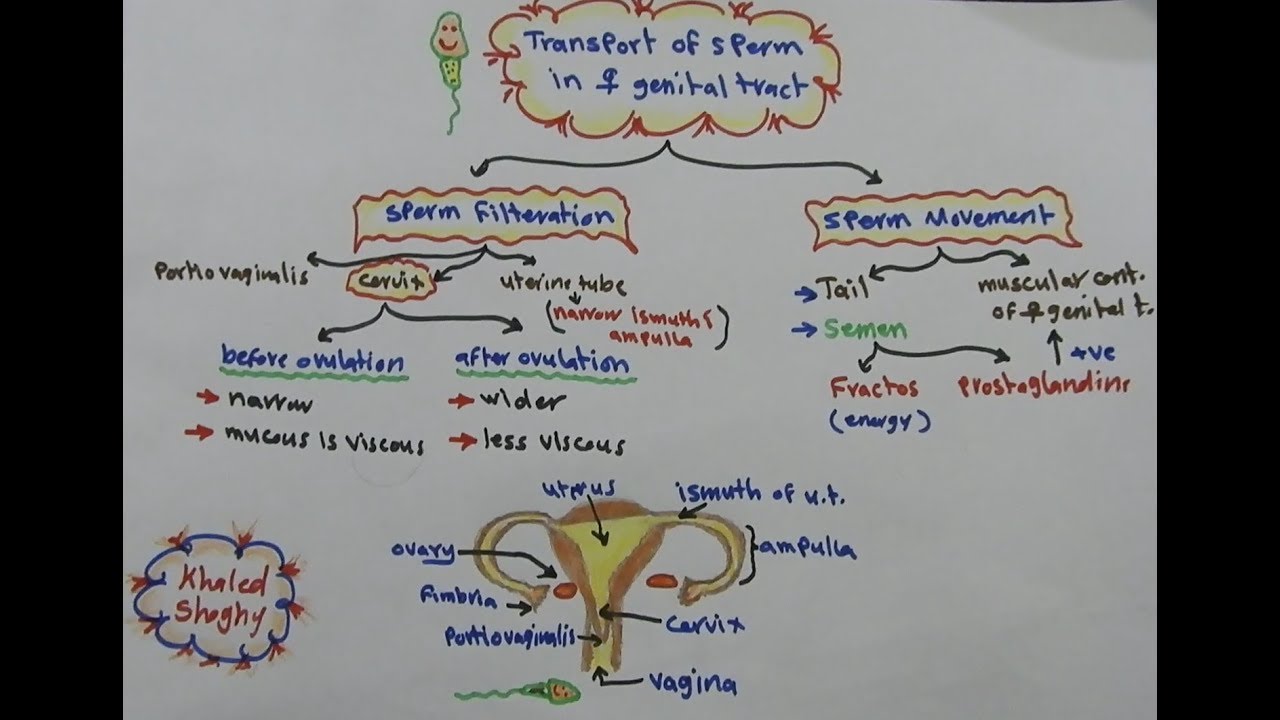 Transport of sperm
in ♀ genital tract
Sperm Filteration
Sperm Movement
Portio vaginalis
cervix
uterine tube
(narrow ismuth &
ampulla)
before ovulation
→ narrow
→ mucous is viscous
after ovulation
→ wider
→ less viscous
→ Tail
→ Semen
muscular cont.
of ♀ genital t.
+ve
Fractos
(energy)
Prostaglandins
uterus
ismuth of u.t.
ovary
ampulla
Fimbria
cervix
Portio vaginalis
vagina
Khaled
Shoghy